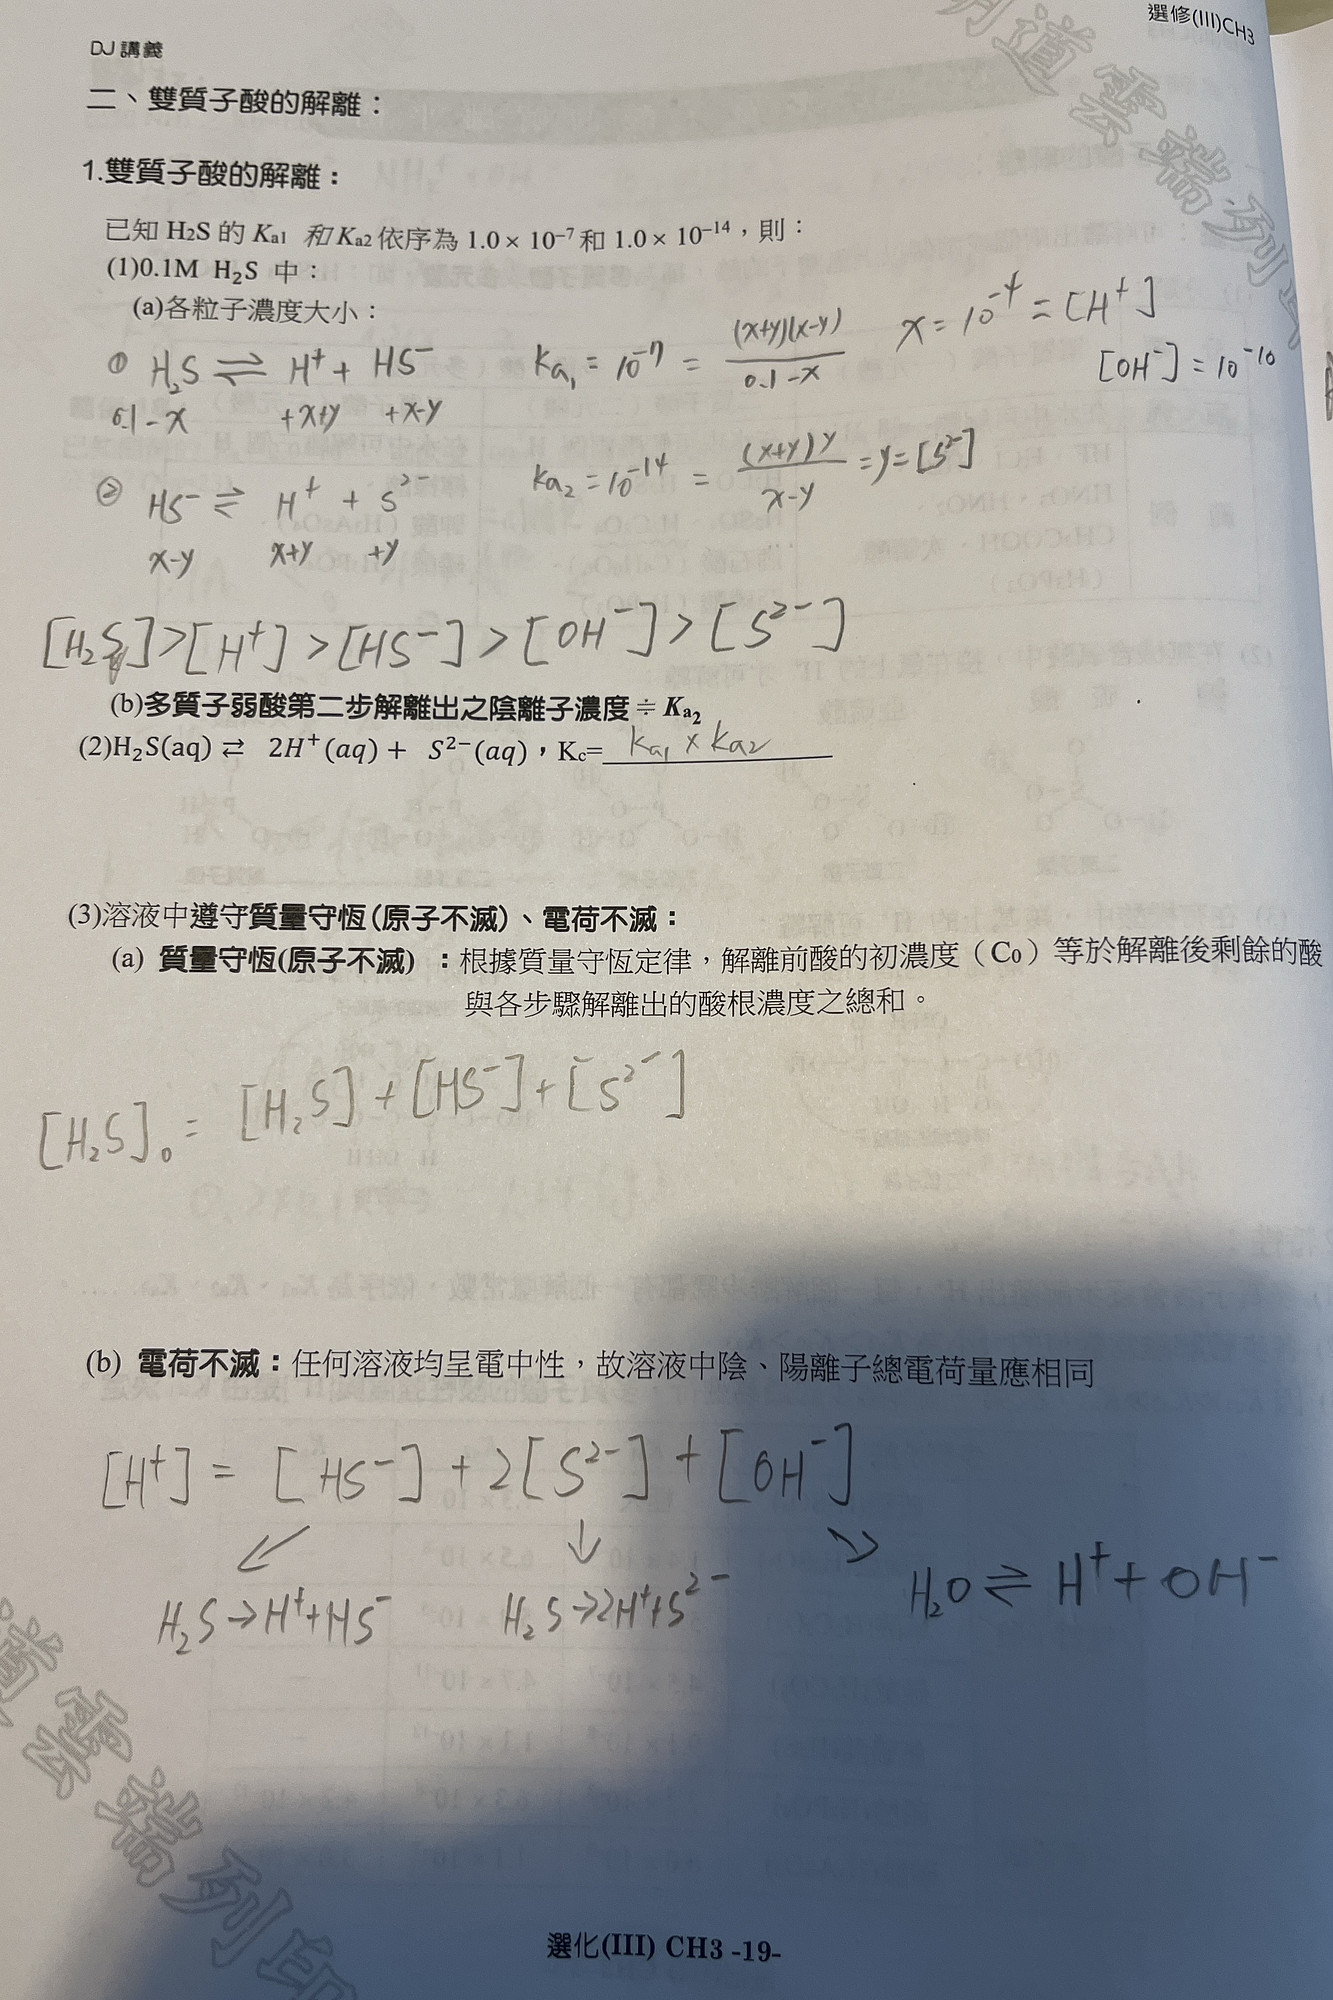 選修(III)CH3
DJ 講義
二、雙質子酸的解離：
1.雙質子酸的解離：
已知 H₂S 的 Kₐ₁ 和 Kₐ₂ 依序為 1.0 × 10⁻⁷ 和 1.0 × 10⁻¹⁴，則：
(1)0.1M H₂S 中：
(a)各粒子濃度大小：
① H₂S ⇌ H⁺ + HS⁻ Ka₁ = 10⁻⁷ = (x+y)(x-y) / 0.1-x x = 10⁻⁴ = [H⁺]
0.1-x +x+y +x-y [OH⁻] = 10⁻¹⁰
② HS⁻ ⇌ H⁺ + S²⁻ Ka₂ = 10⁻¹⁴ = (x+y)y / x-y = y = [S²⁻]
x-y x+y +y
[H₂S] > [H⁺] > [HS⁻] > [OH⁻] > [S²⁻]
(b)多質子弱酸第二步解離出之陰離子濃度≒ Kₐ₂
(2)H₂S(aq) ⇄ 2H⁺(aq) + S²⁻(aq)，Kc= Ka₁ × Ka₂
(3)溶液中遵守質量守恆(原子不滅)、電荷不滅：
(a) 質量守恆(原子不滅) ：根據質量守恆定律，解離前酸的初濃度（C₀）等於解離後剩餘的酸
與各步驟解離出的酸根濃度之總和。
[H₂S]₀ = [H₂S] + [HS⁻] + [S²⁻]
(b) 電荷不滅：任何溶液均呈電中性，故溶液中陰、陽離子總電荷量應相同
[H⁺] = [HS⁻] + 2[S²⁻] + [OH⁻]
↙ ↓ ↘
H₂S → H⁺ + HS⁻ H₂S → 2H⁺ + S²⁻ H₂O ⇌ H⁺ + OH⁻
選化(III) CH3 -19-